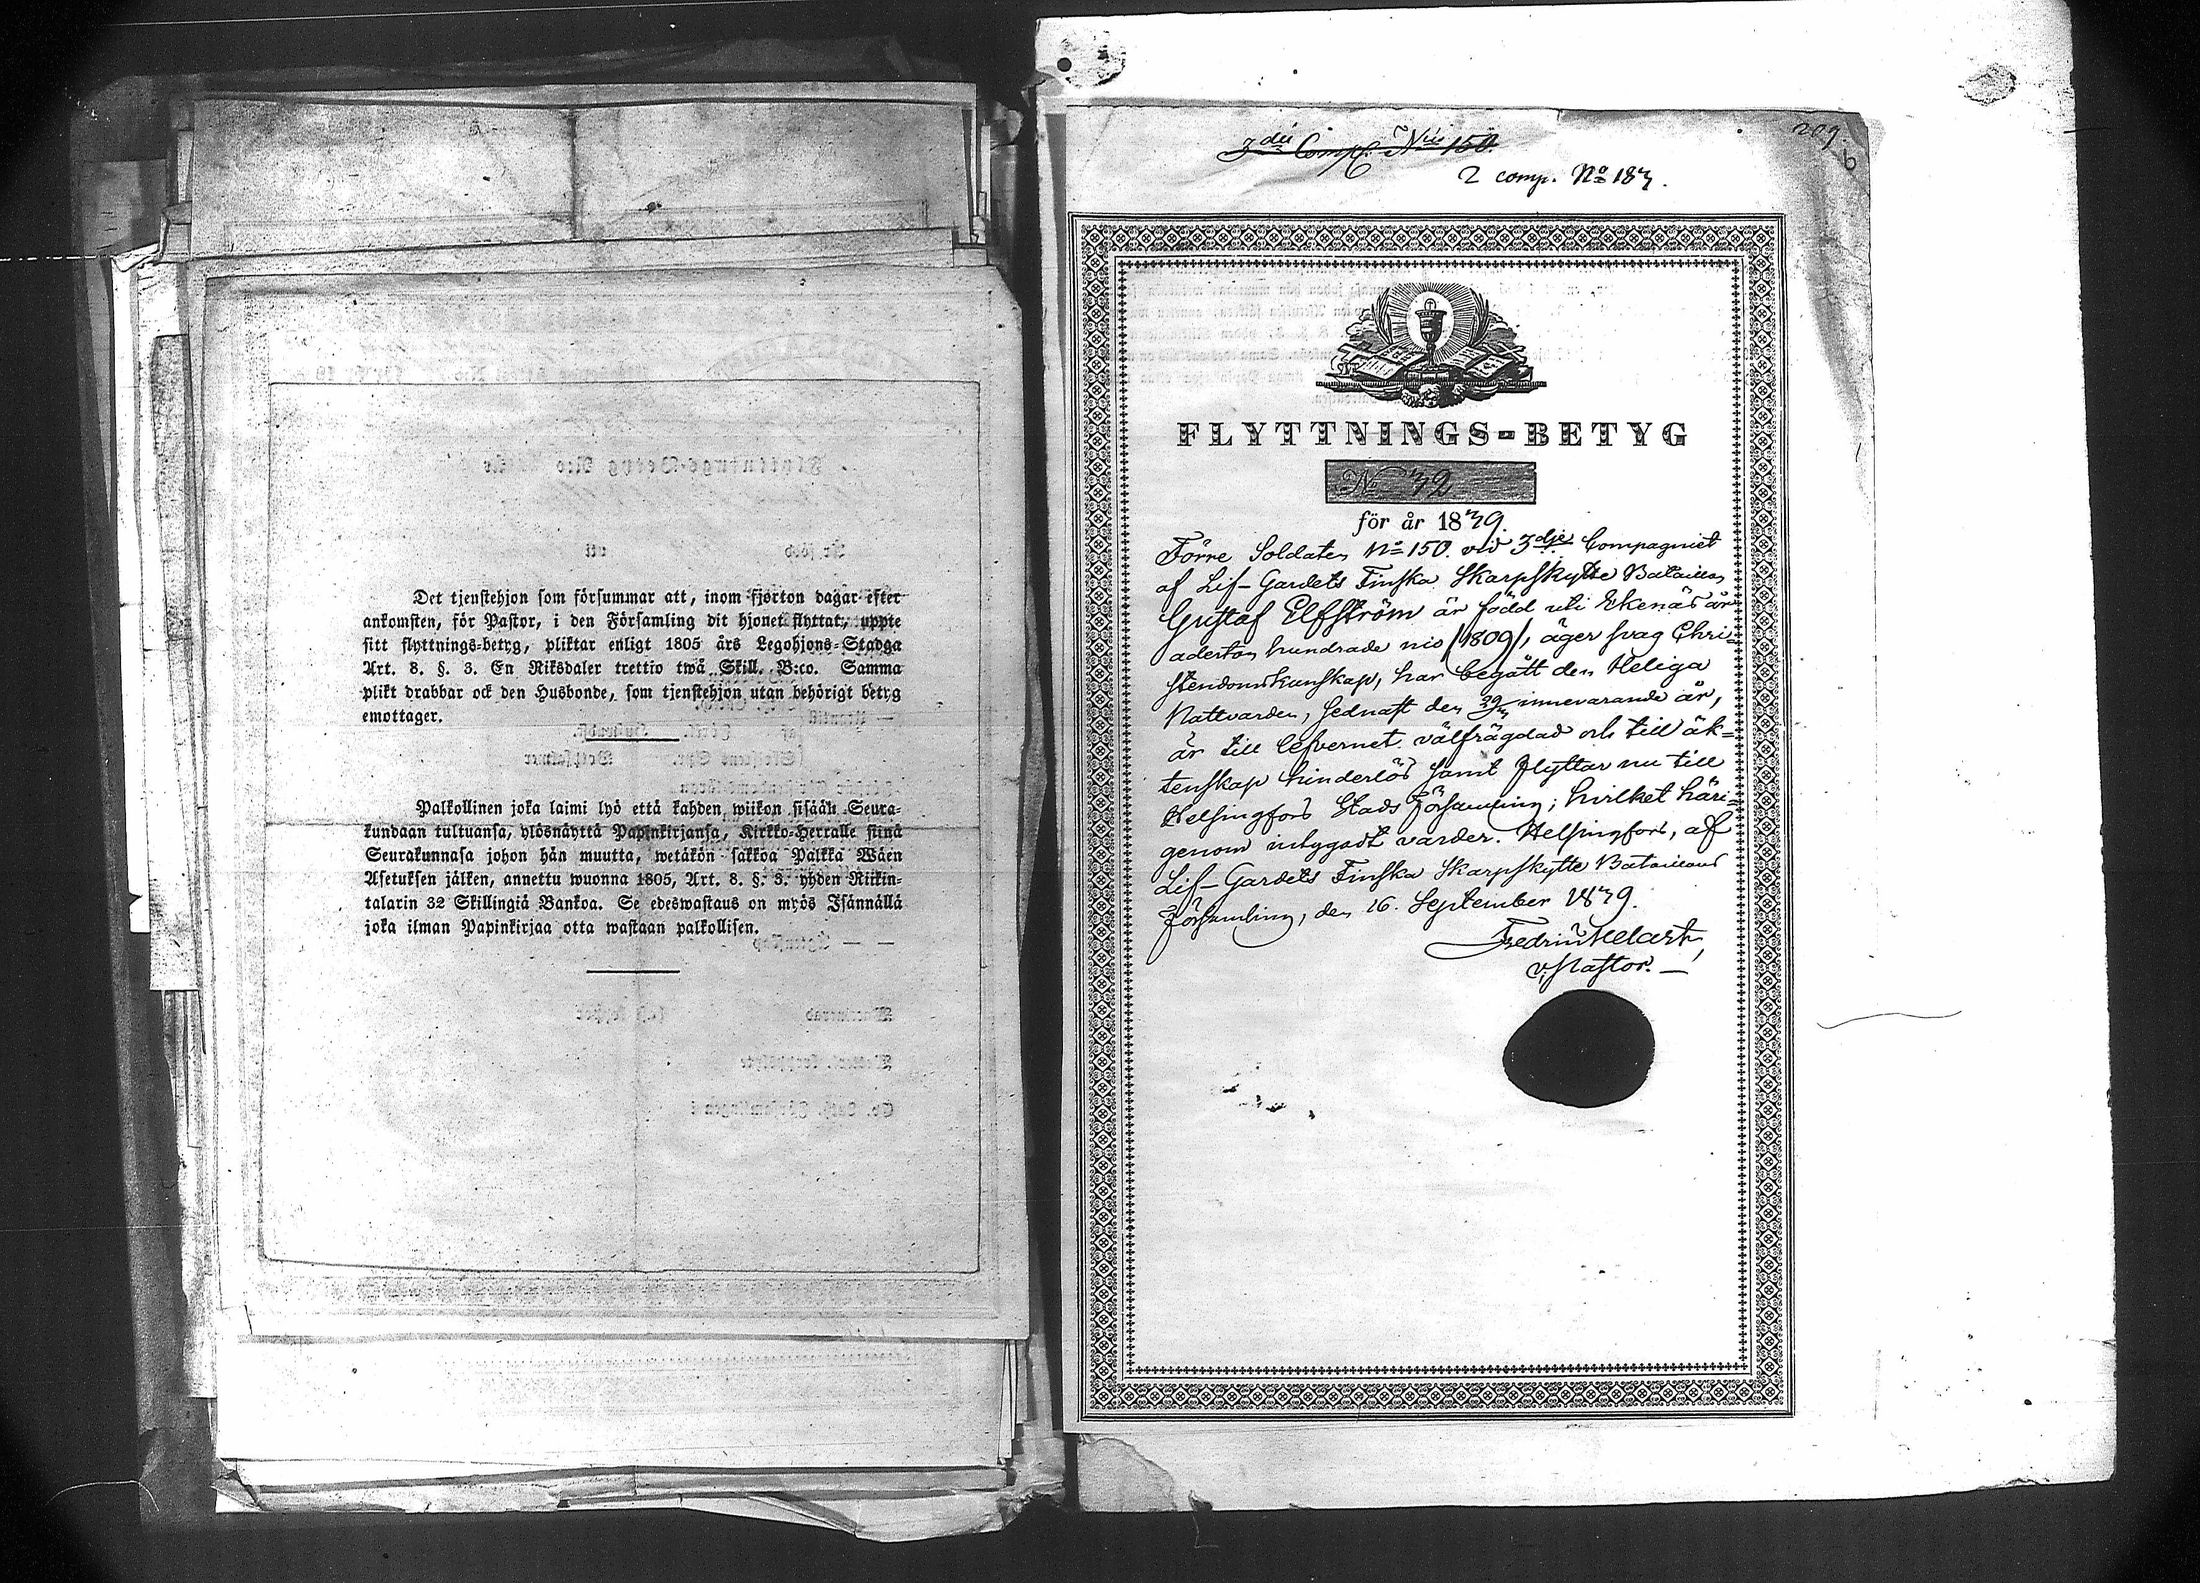 Det tjenstehjon som försummar att, inom fjorton dagar efter
ankomsten, för Pastor, i den Församling dit hjonet flyttat, uppte
sitt flyttnings-betyg, pliktar enligt 1805 års Legohjons-Stadga
Art. 8. §. 3. En Riksdaler trettio twå Skill. B:co. Samma
plikt drabbar ock den Husbonde, som tjenstehjon utan behörigt betyg
emottager.
Palkollinen joka laimi lyö että kahden wiikon sisään Seura-
kundaan tultuansa, ylösnäyttä Papinkirjansa, Kirkko-Herralle siinä
Seurakunnasa johon hän muutta, wetäkön sakkoa Palkka Wäen
Asetuksen jälken, annettu wuonna 1805, Art. 8. §. 3. yhden Riikin-
talarin 32 Skillingiä Bankoa. Se edeswastaus on myös Isännällä
joka ilman Papinkirjaa otta wastaan palkollisen.
209.
6
3die Comp. Nris 150.
2 comp. No 187.
FLYTTNINGS-BETYG
No 72
för år 1879.
Förre Soldaten No 150. vid 3dje Compagniet
af Lif-Gardets Finska Skarpskytte Bataillon
Gustaf Elfström är född uti Ekenäs år
aderton hundrade nio /1809/, äger svag Chri-
stendomskunskap, har begått den Heliga
Nattvarden, sednast den innevarande år,
är till lefvernet välfrägdad och till äk-
tenskap hinderlös samt flyttar nu till
Helsingfors Stads Församling; hvilket häri-
genom intygadt varder. Helsingfors, af
Lif-Gardets Finska Skarpskytte Bataillons
Församling, den 16. September 1879.
v. Pastor.